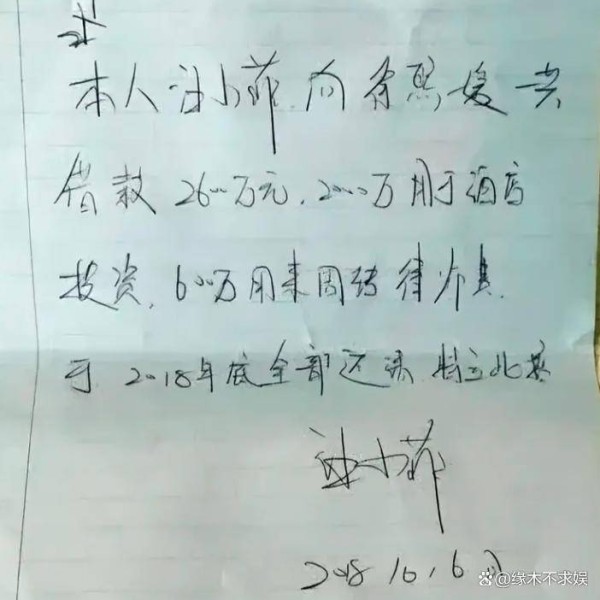 本人汪小菲,向徐熙媛共
借款2600万元,2000万用于酒店
投资,600万用来周转律师费.
于2018年底全部还清 特立此
汪小菲
2018
@缘木不求娱